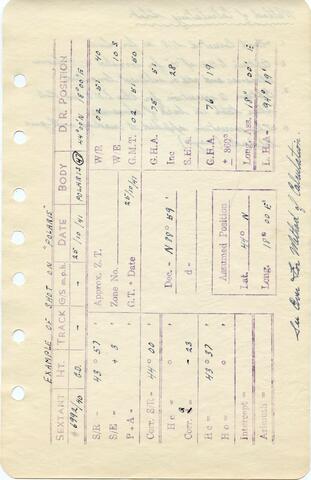 EXAMPLE OF SHOT ON "POLARIS"
SEXTANT HT. TRACK G/S m.p.h. DATE BODY D. R. POSITION
#6992/40 G.D. - - 25/10/41 POLARIS 44°05'N 18°00'E
S/R - 43° 57' Approx. Z.T. W/R 02 51 40
S/E = + 3 ' Zone No. W/E 10 S
P + A = ' G.T. + Date 25/10/41 G.M.T. 02 51 50
Corr. S/R = 44° 00 ' G.H.A. 75 51
H c = ° ' Dec. = N 88° 59 ' Inc 28
Corr = - 23 ' d = S.H.A.
H c = 43° 37 ' G.H.A. 76 19
H o = ° ' Assumed Position ± 360°
Intercept = Lat. 44° N Long. Ass. 18° 00' E
Azimuth = Long. 18° 00' E' L. H.A. = 94° 19'
See Over For Method of Calculation